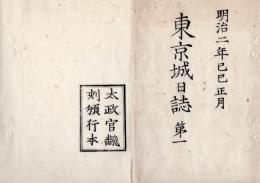 明治二年己巳正月
東京城日誌 第一
太政官
刻頒行本